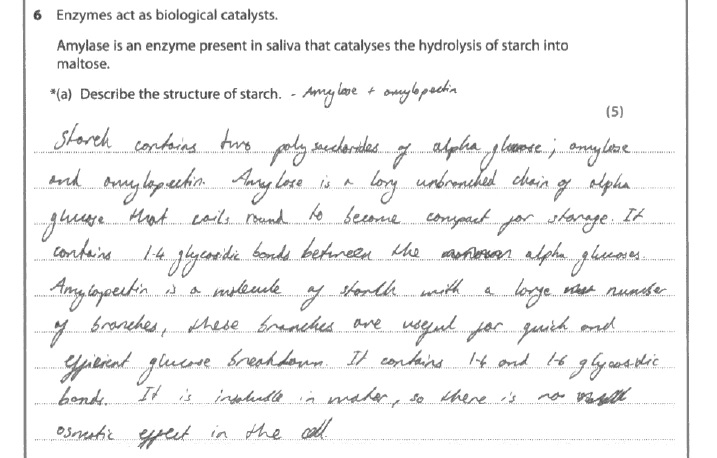 6 Enzymes act as biological catalysts.
Amylase is an enzyme present in saliva that catalyses the hydrolysis of starch into
maltose.
*(a) Describe the structure of starch. - Amylose + amylopectin
(5)
Starch contains two polysaccharides of alpha glucose; amylose
and amylopectin. Amylose is a long unbranched chain of alpha
glucose that coils round to become compact for storage. It
contains 1-4 glycosidic bonds between the alpha glucoses.
Amylopectin is a molecule of starch with a large number
of branches, these branches are useful for quick and
efficient glucose breakdown. It contains 1-4 and 1-6 glycosidic
bonds. It is insoluble in water, so there is no
osmotic effect in the cell.